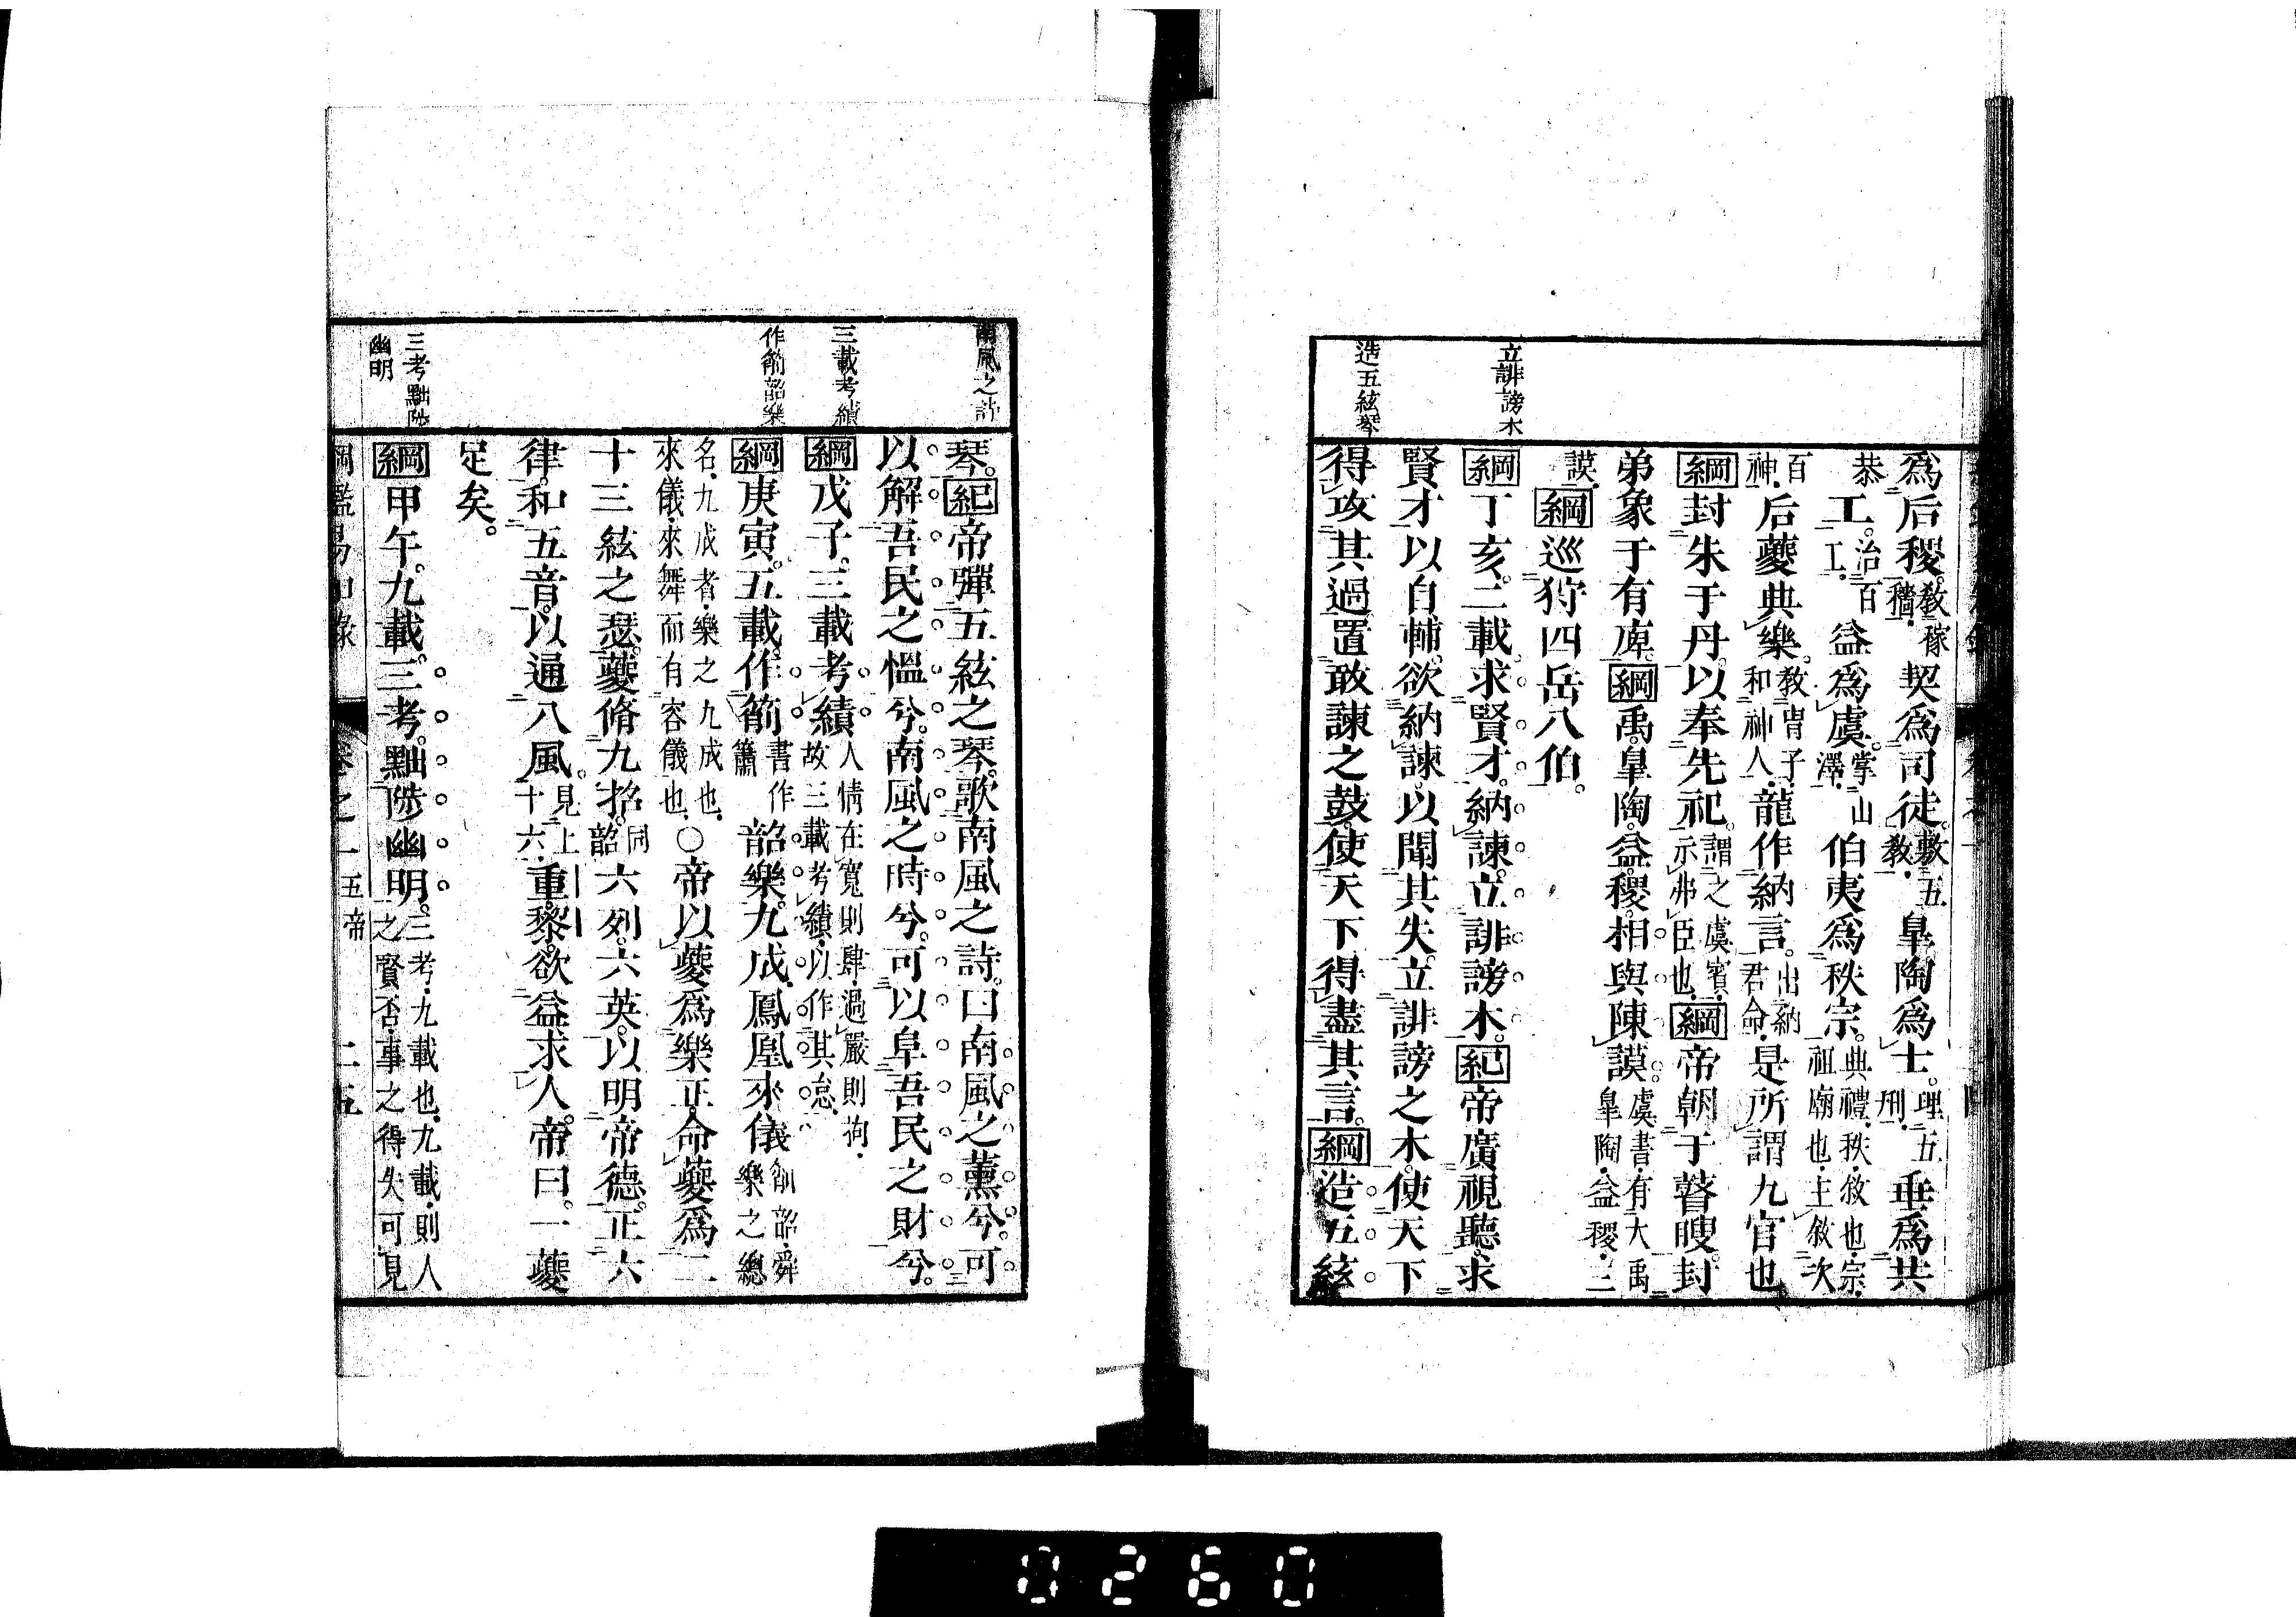 立誹謗木
造五絃琴
爲后稷。教稼穡。契爲司徒。敷五教。皐陶爲士。理五刑。垂爲共
恭工。治百工。益爲虞。掌山澤。伯夷爲秩宗。典禮。秩。敘也。宗。祖廟也。主敘次
百神。后夔典樂。教胄子。和神人。龍作納言。出納君命。是所謂九官也
綱封朱于丹。以奉先祀。謂之虞賓。示弗臣也。綱帝朝于瞽瞍。封
弟象于有庳。綱禹。皐陶。益。稷。相與陳謨。虞書。有大禹皐陶。益稷。二
謨。綱巡狩四岳八伯。
綱丁亥。二載。求賢才。納諫。立誹謗木。紀帝廣視聽。求
賢才以自輔。欲納諫。以聞其失。立誹謗之木。使天下
得攻其過。置敢諫之鼓。使天下得盡其言。綱造五絃
南風之詩
三載考績
作箾韶樂
三考黜陟
幽明
琴。紀帝彈五絃之琴。歌南風之詩。曰南風之薰兮。可
以解吾民之慍兮。南風之時兮。可以阜吾民之財兮。
綱戊子。三載考績人情在寬則肆。過嚴則拘。故三載考績。以作其怠。
綱庚寅。五載。作箾書作簫韶樂。九成。鳳凰來儀箾韶。舜樂之總
名。九成者。樂之九成也。來儀。來舞而有容儀也。○帝以夔爲樂正。命夔爲二
十三絃之瑟。夔脩九招。同韶六列。六英。以明帝德。正六
律。和五音。以通八風。見上十六。重黎。欲益求人。帝曰。一夔
足矣。
綱甲午。九載。三考。黜陟幽明。三考。九載也。九載。則人之賢否。事之得失可見
卷之一 五帝 二五
0260